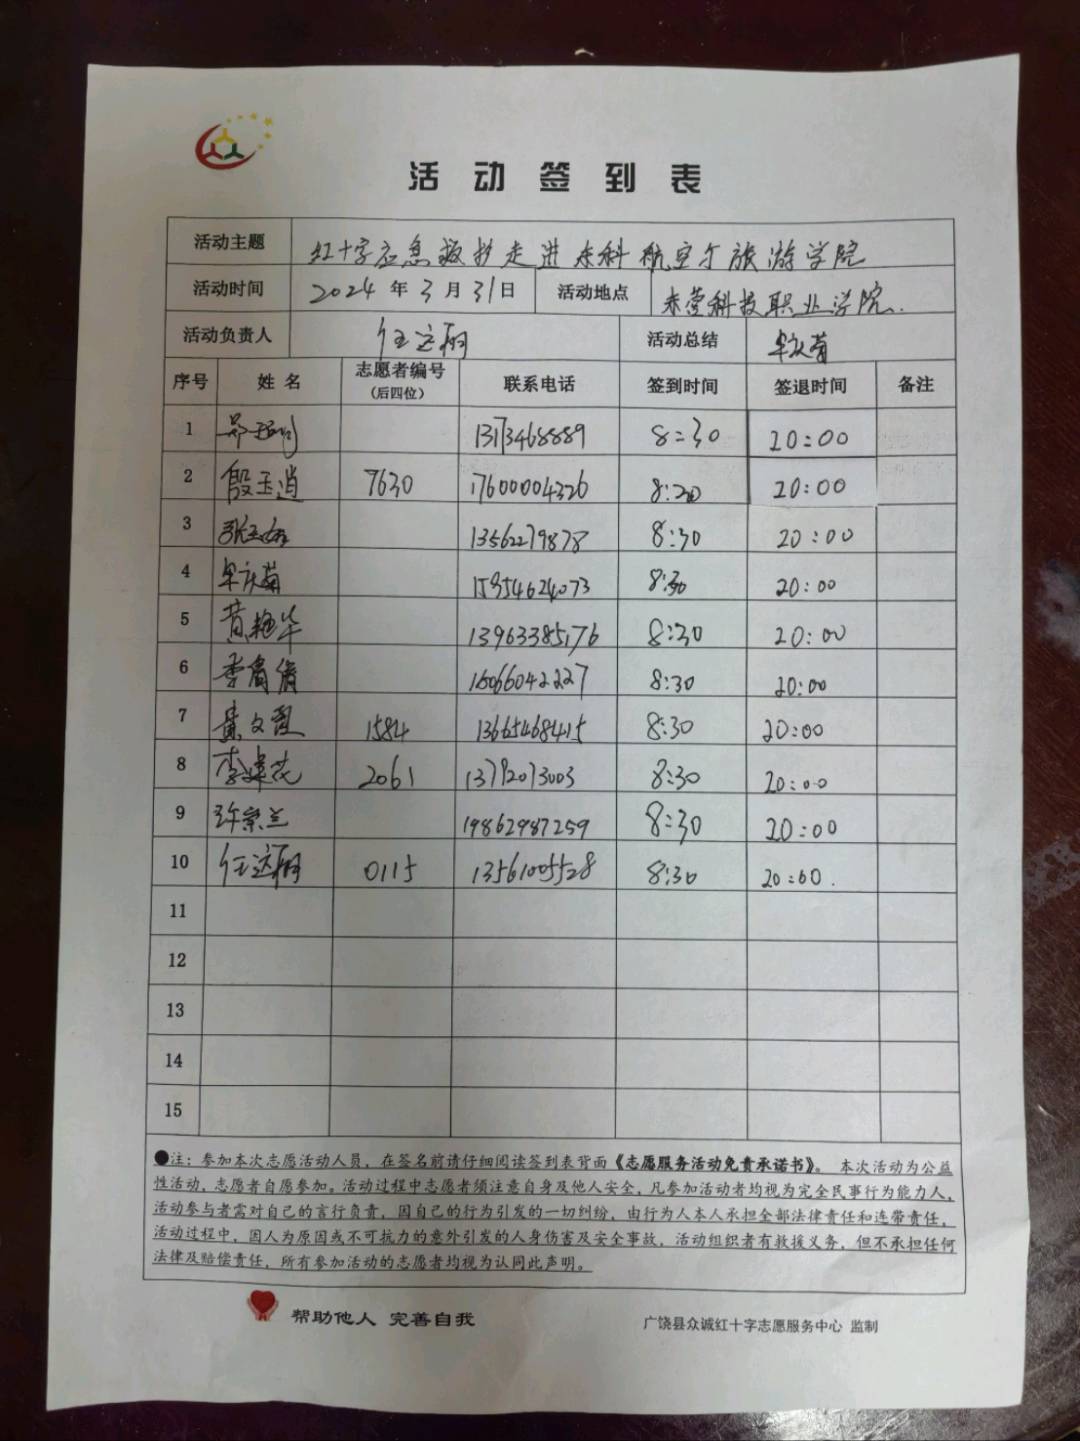 活动签到表
活动主题 红十字应急救护走进东科航空与旅游学院
活动时间 2024年3月31日 活动地点 东营科技职业学院.
活动负责人 任 活动总结 牟庆菊
序号 姓名 志愿者编号 联系电话 签到时间 签退时间 备注
(后四位)
1 13173468889 8:30 20:00
2 殷玉消 7630 17600004326 8:20 20:00
3 张玉 13562279878 8:30 20:00
4 牟庆菊 15954624073 8:30 20:00
5 黄艳华 13963385176 8:30 20:00
6 李倩倩 15066042227 8:30 20:00
7 文霞 1584 13665468415 8:30 20:00
8 李建花 2061 13792073003 8:30 20:00
9 许宗兰 19862987259 8:30 20:00
10 任 0115 13561005528 8:30 20:00.
11
12
13
14
15
●注：参加本次志愿活动人员，在签名前请仔细阅读签到表背面《志愿服务活动免责承诺书》。本次活动为公益
性活动，志愿者自愿参加。活动过程中志愿者须注意自身及他人安全，凡参加活动者均视为完全民事行为能力人，
活动参与者需对自己的言行负责，因自己的行为引发的一切纠纷，由行为人本人承担全部法律责任和连带责任，
活动过程中，因人为原因或不可抗力的意外引发的人身伤害及安全事故，活动组织者有救援义务，但不承担任何
法律及赔偿责任，所有参加活动的志愿者均视为认同此声明。
帮助他人 完善自我
广饶县众诚红十字志愿服务中心 监制